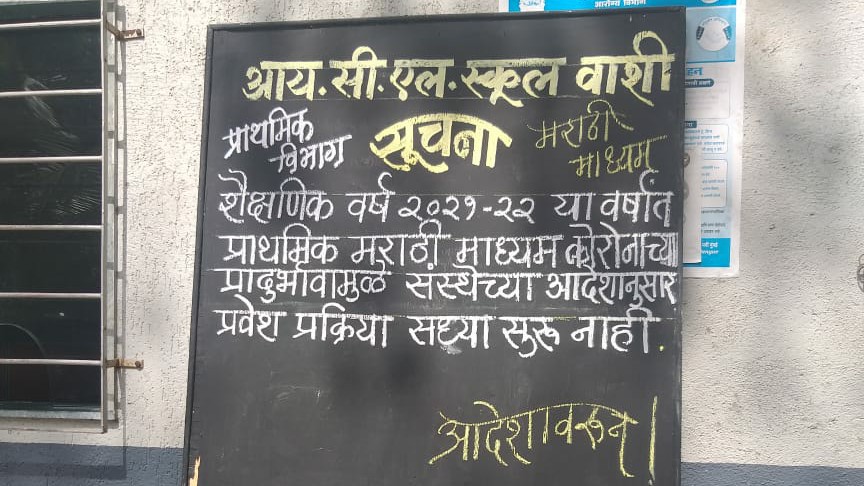 आरोग्य विभाग
आय.सी.एल.स्कूल वाशी
प्राथमिक विभाग सूचना मराठी माध्यम
शैक्षणिक वर्ष २०२१-२२ या वर्षात
प्राथमिक मराठी माध्यम कोरोनाच्या
प्रादुर्भावामुळे संस्थेच्या आदेशानुसार
प्रवेश प्रक्रिया सध्या सुरू नाही.
आदेशावरून।